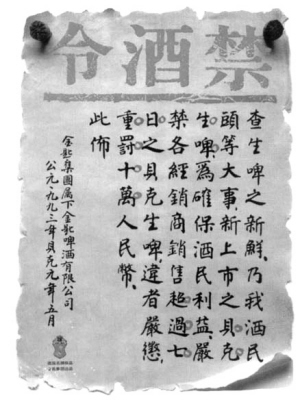 禁酒令
查生啤之新鮮,乃我酒民
頭等大事,新上市之貝克
生啤,爲確保酒民利益,嚴
禁各經銷商銷售超過七
日之貝克生啤,違者嚴懲,
重罰十萬人民幣。
此佈
金匙集團属下金匙啤酒有限公司
公元一九九三年貝克元年五月